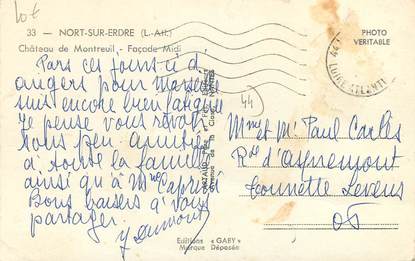 10€
33 - NORT-SUR-ERDRE (L.-Atl.)
Château de Montreuil - Façade Midi
PHOTO
VERITABLE
44
LOIRE ATLANTI
Pars ces jours ci d'
angers pour
suis encore bien fatiguée
Je pense vous revoir
sous peu. amitiés
à toute la famille
ainsi qu'à Mme
Bons baisers à vous
partager.
44
Mme et M. Paul Carles
Rte d'Aspremont
Tournette Levens
06
Editions « GABY »
Marque Déposée